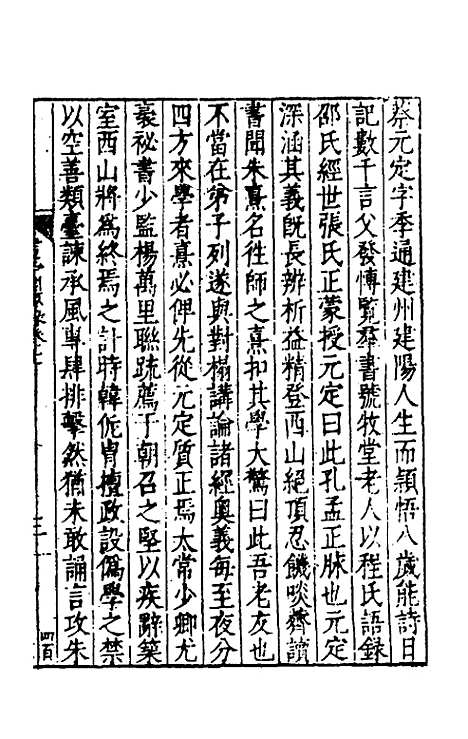 蔡元定字季通建州建陽人生而頴悟八歲能詩日
記數千言父發愽覧羣書號牧堂老人以程氏語錄
邵氏經世張氏正蒙授元定曰此孔孟正脉也元定
深涵其義旣長辨析益精登西山絕頂忍饑啖薺讀
書聞朱熹名徃師之熹扣其學大驚曰此吾老友也
不當在弟子列遂與對榻講論諸經奧義每至夜分
四方來學者熹必俾先從元定質正焉太常少卿尤
袤祕書少監楊萬里聯疏薦于朝召之堅以疾辭築
室西山將爲終焉之計時韓侂胄擅政設僞學之禁
以空善類臺諫承風專肆排擊然猶未敢誦言攻朱
四百